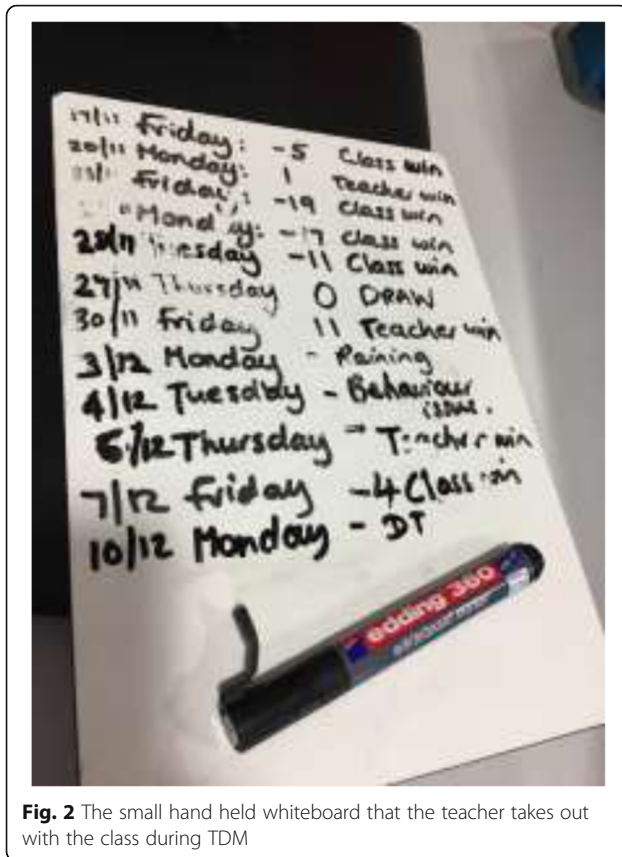 17/11 Friday: -5 Class win
20/11 Monday: 1 Teacher win
Friday: -19 Class win
Monday: -17 Class win
Tuesday -11 Class win
Thursday 0 DRAW
30/11 Friday 11 Teacher win
3/12 Monday - Raining
4/12 Tuesday - Behaviour
issue.
6/12 Thursday - Teacher win
7/12 Friday -4 Class win
10/12 Monday - DT
edding 360
Fig. 2 The small hand held whiteboard that the teacher takes out
with the class during TDM